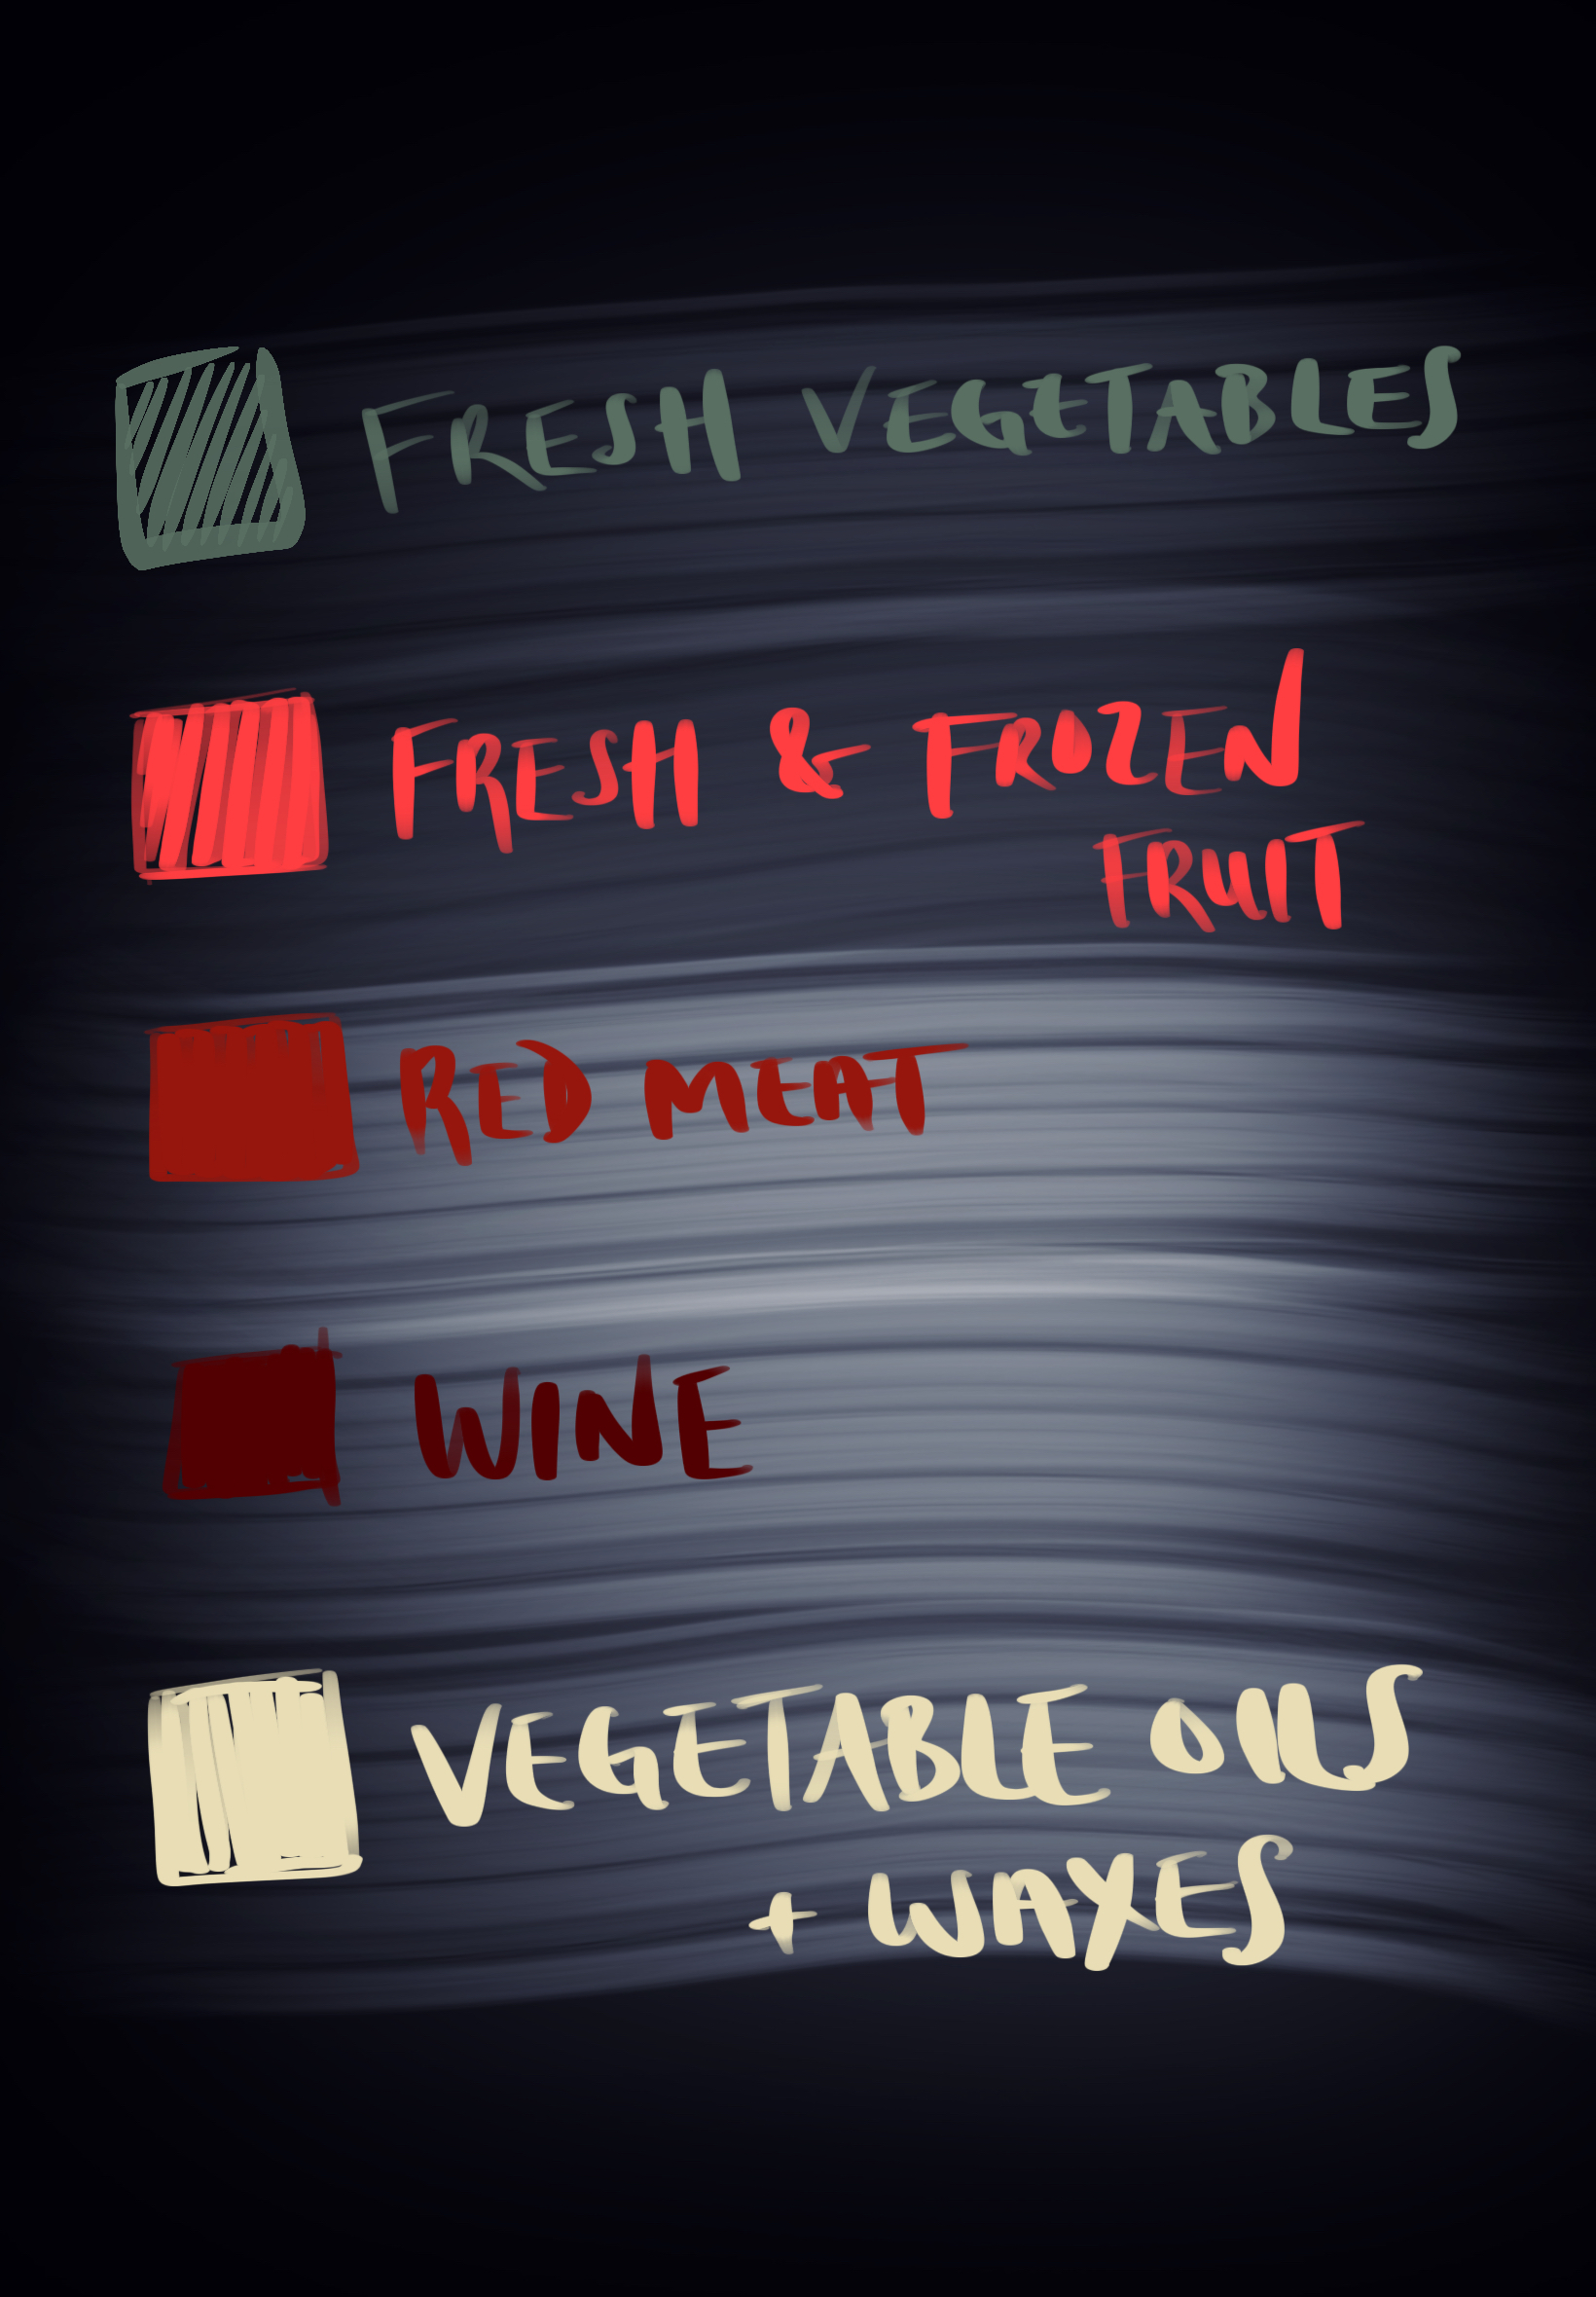 FRESH VEGETABLES
FRESH & FROZEN
FRUIT
RED MEAT
WINE
VEGETABLE OILS
+ WAXES